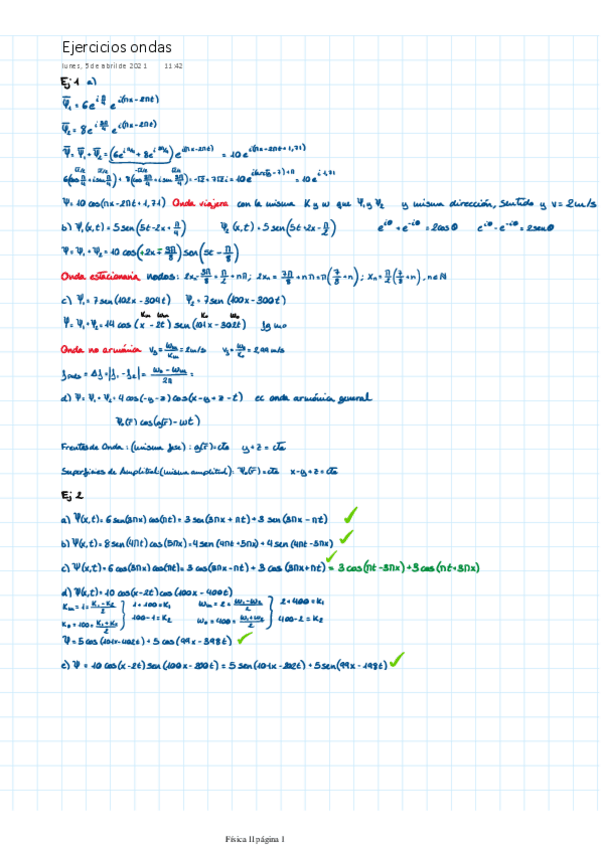 Ejercicios ondas
lunes, 5 de abril de 2021 11:42
Ej 1 a)
Ψ̅₁ = 6e^{iπ/4} e^{i(πx-2πt)}
Ψ̅₂ = 8e^{i3π/4} e^{i(πx-2πt)}
Ψ̅ = Ψ̅₁ + Ψ̅₂ = (6e^{iπ/4} + 8e^{i3π/4}) e^{i(πx-2πt)} = 10e^{i(πx-2πt+1,71)}
Ψ = 10 cos(πx-2πt+1,71) Onda viajera con la misma K y w que Ψ₁ y Ψ₂ y misma dirección, sentido y v = 2m/s
b) Ψ₁(x,t) = 5 sen(5t-2x+π/4) Ψ₂(x,t) = 5 sen(5t+2x-π/2) e^{iθ} + e^{-iθ} = 2cosθ e^{iθ} - e^{-iθ} = 2senθ
Ψ = Ψ₁ + Ψ₂ = 10 cos(+2x-3π/8) sen(5t-π/8)
Onda estacionaria nodos: 2xₙ-3π/8 = π/2 + nπ; 2xₙ = 7π/8 + nπ = π(7/8+n); xₙ = π/2(7/8+n), n∈N
c) Ψ₁ = 7 sen(102x-304t) Ψ₂ = 7 sen(100x-300t)
Ψ = Ψ₁ + Ψ₂ = 14 cos(x-2t) sen(101x-302t)
Onda no armónica v_g = wₘ/kₘ = 2m/s v_f = w₀/k₀ = 2,99 m/s
= Δf = |f₁-f₂| = =
d) Ψ = Ψ₁ + Ψ₂ = 4 cos(-y-z) cos(x-y+z-t) ec onda armónica general
Ψ₀(r̅) cos(g(r̅)-wt)
Frentes de Onda: (misma fase): g(r̅) = cte y+z = cte
Superficies de Amplitud (misma amplitud): Ψ₀(r̅) = cte x-y+z = cte
Ej 2
a) Ψ(x,t) = 6 sen(3πx) cos(πt) = 3 sen(3πx+πt) + 3 sen(3πx-πt) ✓
b) Ψ(x,t) = 8 sen(4πt) cos(5πx) = 4 sen(4πt+5πx) + 4 sen(4πt-5πx) ✓
c) Ψ(x,t) = 6 cos(3πx) cos(πt) = 3 cos(3πx-πt) + 3 cos(3πx+πt) ✓ = 3 cos(πt-3πx) + 3 cos(πt+3πx)
d) Ψ(x,t) = 10 cos(x-2t) cos(100x-400t)
Kₘ = 1 = (K₁-K₂)/2 1+100 = K₁ wₘ = 2 = (w₁-w₂)/2 2+400 = K₁
K₀ = 100 = (K₁+K₂)/2 100-1 = K₂ w₀ = 400 = (w₁+w₂)/2 400-2 = K₂
Ψ = 5 cos(101x-402t) + 5 cos(99x-398t) ✓
e) Ψ = 10 cos(x-2t) sen(100x-200t) = 5 sen(101x-202t) + 5 sen(99x-198t) ✓
Física II página 1